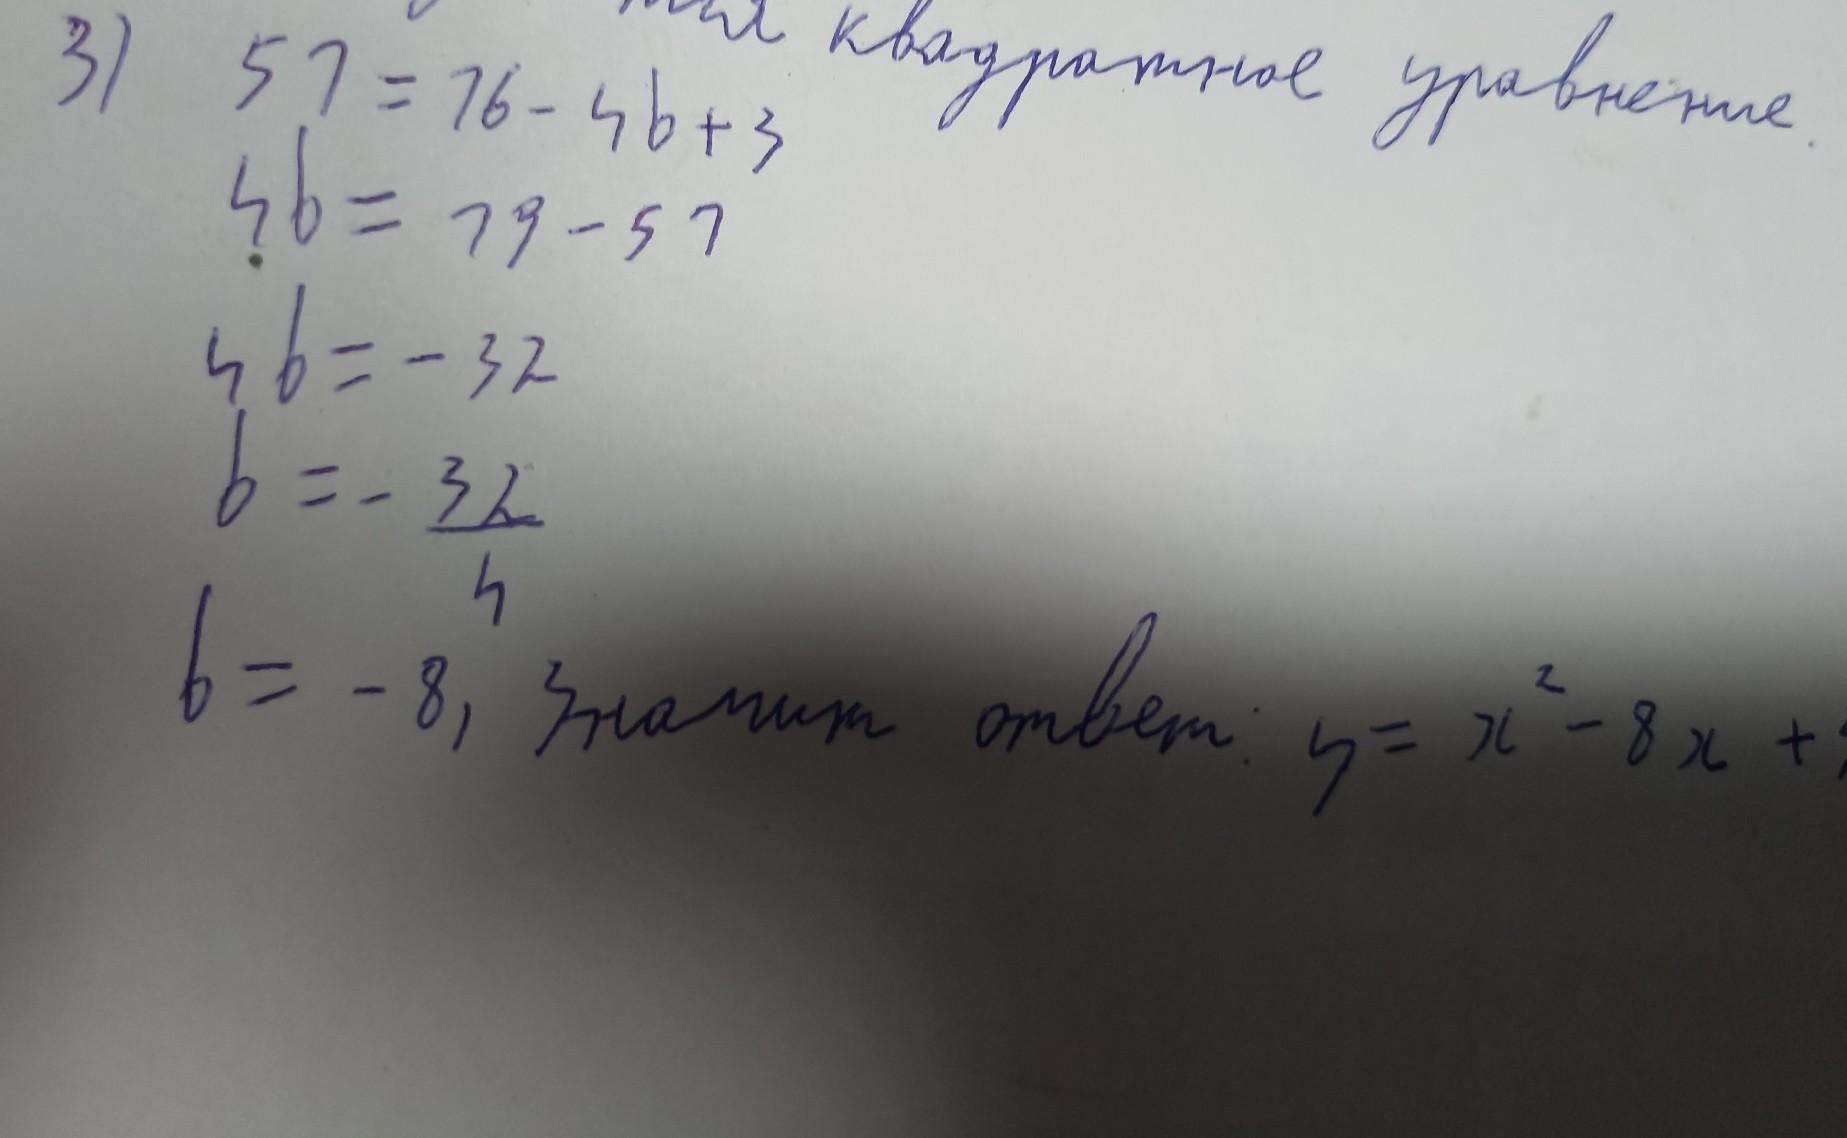 квадратное уравнение.
3) 51 = 16 - 4b + 3
4b = 19 - 51
4b = - 32
b = - 32/4
b = - 8, Значит ответ: y = x² - 8x +